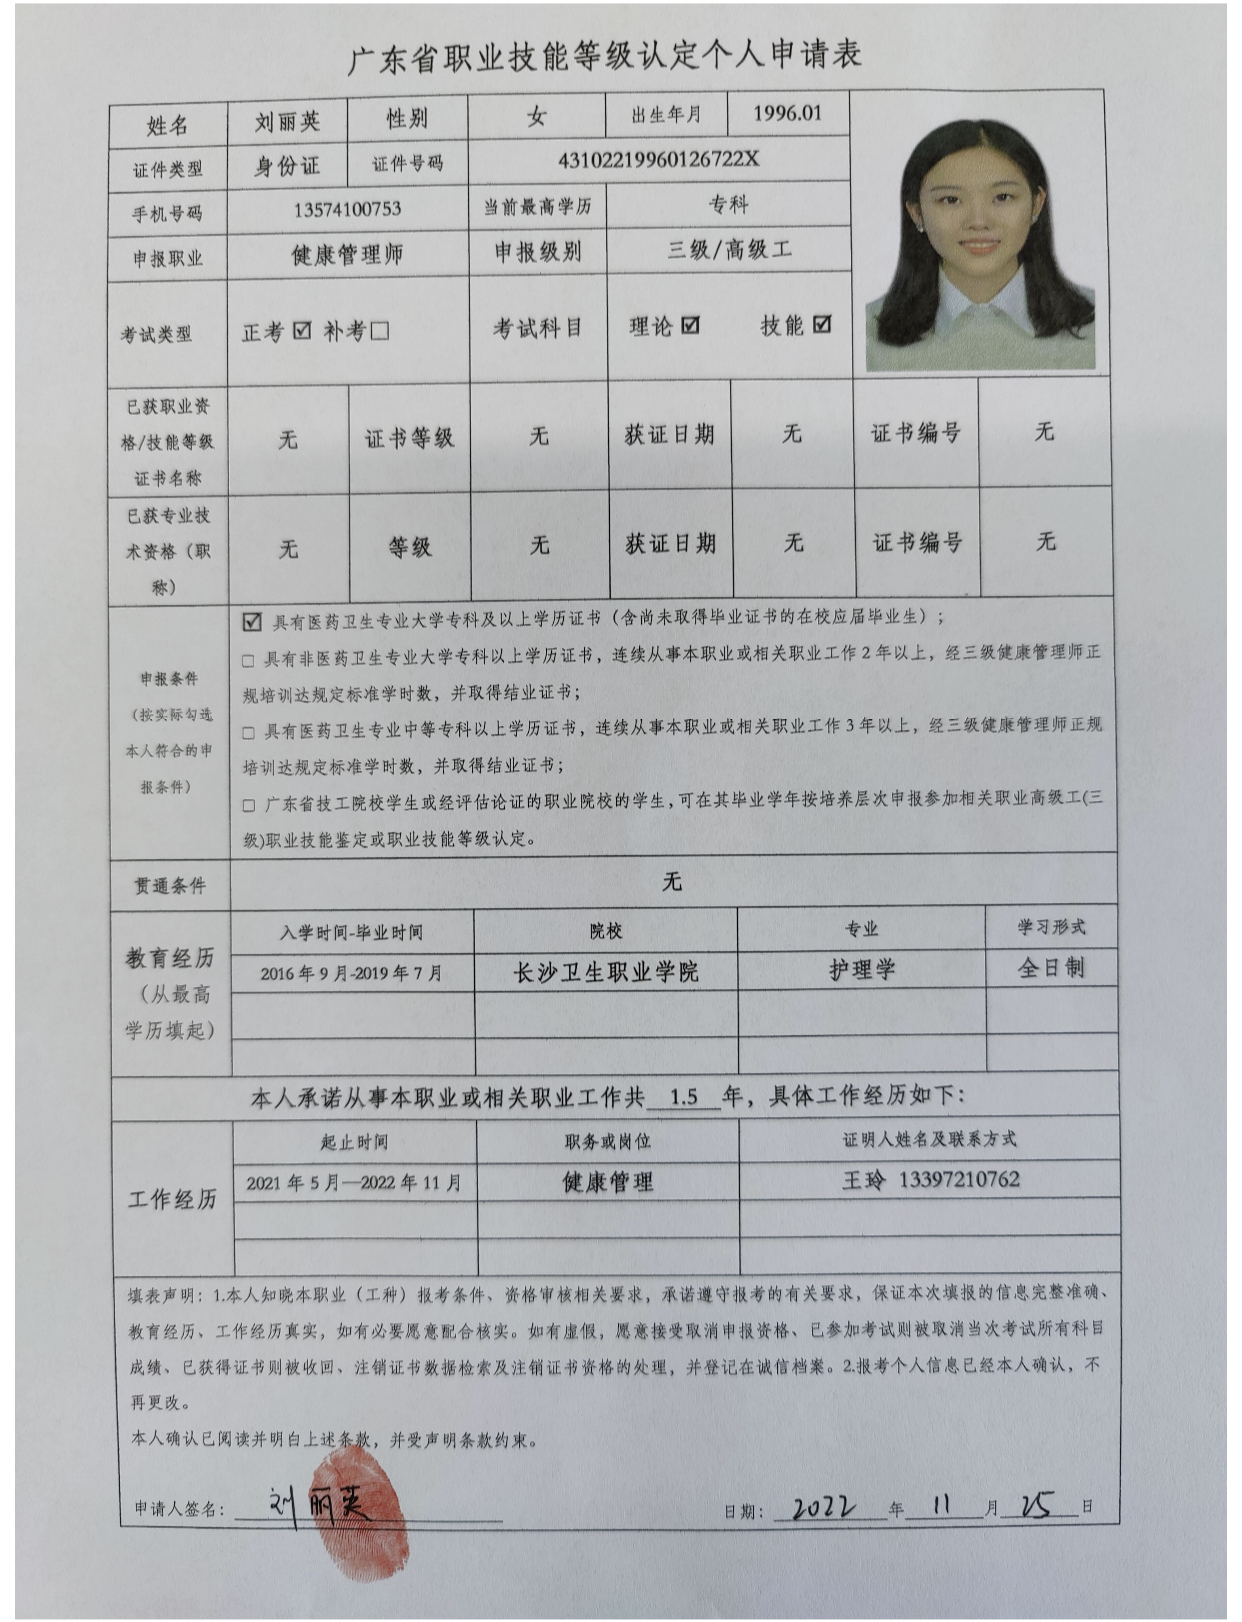 广东省职业技能等级认定个人申请表
姓名 刘丽英 性别 女 出生年月 1996.01
证件类型 身份证 证件号码 43102219960126722X
手机号码 13574100753 当前最高学历 专科
申报职业 健康管理师 申报级别 三级/高级工
考试类型 正考☑ 补考□ 考试科目 理论☑ 技能☑
已获职业资
格/技能等级
证书名称
无 证书等级 无 获证日期 无 证书编号 无
已获专业技
术资格（职
称）
无 等级 无 获证日期 无 证书编号 无
申报条件
（按实际勾选
本人符合的申
报条件）
☑ 具有医药卫生专业大学专科及以上学历证书（含尚未取得毕业证书的在校应届毕业生）；
□ 具有非医药卫生专业大学专科以上学历证书，连续从事本职业或相关职业工作2年以上，经三级健康管理师正
规培训达规定标准学时数，并取得结业证书；
□ 具有医药卫生专业中等专科以上学历证书，连续从事本职业或相关职业工作3年以上，经三级健康管理师正规
培训达规定标准学时数，并取得结业证书；
□ 广东省技工院校学生或经评估论证的职业院校的学生,可在其毕业学年按培养层次申报参加相关职业高级工(三
级)职业技能鉴定或职业技能等级认定。
贯通条件 无
教育经历
（从最高
学历填起）
入学时间-毕业时间 院校 专业 学习形式
2016年9月-2019年7月 长沙卫生职业学院 护理学 全日制
本人承诺从事本职业或相关职业工作共 1.5 年，具体工作经历如下：
工作经历
起止时间 职务或岗位 证明人姓名及联系方式
2021年5月—2022年11月 健康管理 王玲 13397210762
填表声明：1.本人知晓本职业（工种）报考条件、资格审核相关要求，承诺遵守报考的有关要求，保证本次填报的信息完整准确、
教育经历、工作经历真实，如有必要愿意配合核实。如有虚假，愿意接受取消申报资格、已参加考试则被取消当次考试所有科目
成绩、已获得证书则被收回、注销证书数据检索及注销证书资格的处理，并登记在诚信档案。2.报考个人信息已经本人确认，不
再更改。
本人确认已阅读并明白上述条款，并受声明条款约束。
申请人签名：刘丽英 日期：2022年11月25日